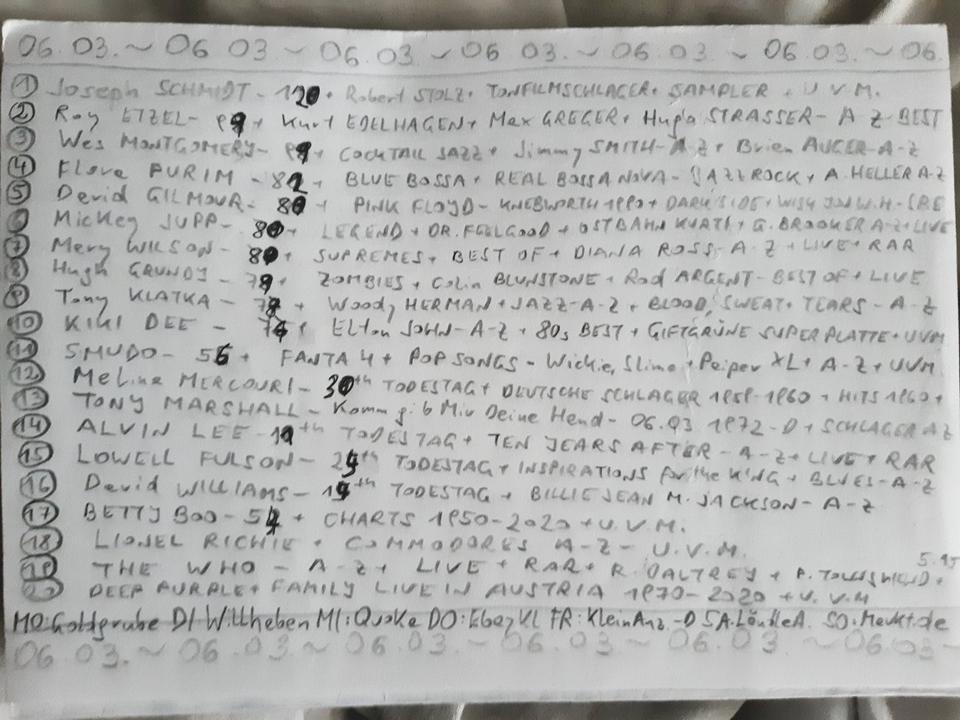 06.03.~06 03~06.03.~06 03~06.03.~06.03.~06.
① Joseph SCHMIDT - 120 + Robert STOLZ + TONFILMSCHLAGER + SAMPLER + U.V.M.
② Roy ETZEL - 99 + Kurt EDELHAGEN + Max GREGER + Hugo STRASSER - A-Z-BEST
③ Wes MONTGOMERY - 99 + COCKTAIL JAZZ + Jimmy SMITH - A-Z + Brien AUGER - A-Z
④ Flora PURIM - 82 + BLUE BOSSA + REAL BOSSA NOVA - JAZZROCK + A. HELLER A-Z
⑤ David GILMOUR - 80 + PINK FLOYD - KNEBWORTH 1990 + DARK SIDE + WISH YOU W.H-
⑥ Mickey JUPP - 80 + LEGEND + DR. FEELGOOD + OSTBAHN KURTI + G. BROOKER A-Z + LIVE
⑦ Mary WILSON - 80 + SUPREMES + BEST OF + DIANA ROSS - A-Z + LIVE + RAR
⑧ Hugh GRUNDY - 79 + ZOMBIES + Colin BLUNSTONE + Rod ARGENT - BEST OF + LIVE
⑨ Tony KLATKA - 78 + Woody HERMAN + JAZZ - A-Z + BLOOD, SWEAT + TEARS - A-Z
⑩ KIKI DEE - 74 + Elton JOHN - A-Z + 80s BEST + GIFTGRÜNE SUPERPLATTE + UVM
⑪ SMUDO - 56 + FANTA 4 + POP SONGS - Wickie, Slime + Paiper XL + A-Z + UVM
⑫ Melina MERCOURI - 30th TODESTAG + DEUTSCHE SCHLAGER 1959-1960 + HITS 1960 +
⑬ TONY MARSHALL - Komm gib Mir Deine Hand - 06.03 1972 - D + SCHLAGER AZ
⑭ ALVIN LEE - 10th TODESTAG + TEN YEARS AFTER - A-Z + LIVE + RAR
⑮ LOWELL FULSON - 25th TODESTAG + INSPIRATIONS for the KING + BLUES - A-Z
⑯ David WILLIAMS - 15th TODESTAG + BILLIE JEAN M. JACKSON - A-Z
⑰ BETTY BOO - 54 + CHARTS 1950-2020 + U.V.M.
⑱ LIONEL RICHIE + COMMODORES A-Z - U.V.M.
⑲ THE WHO - A-Z + LIVE + RAR + R. DALTREY + P. TOWNSHEND +
⑳ DEEP PURPLE + FAMILY LIVE IN AUSTRIA 1970-2020 + U.V.M
MO:Goldgrube DI Willheben MI:Quoke DO:Ebay KL FR:KleinAnz.-D SA:LändleA. SO:Markt.de
06 03.~06.03.~06.03.~06.03.~06.03.~06.03-